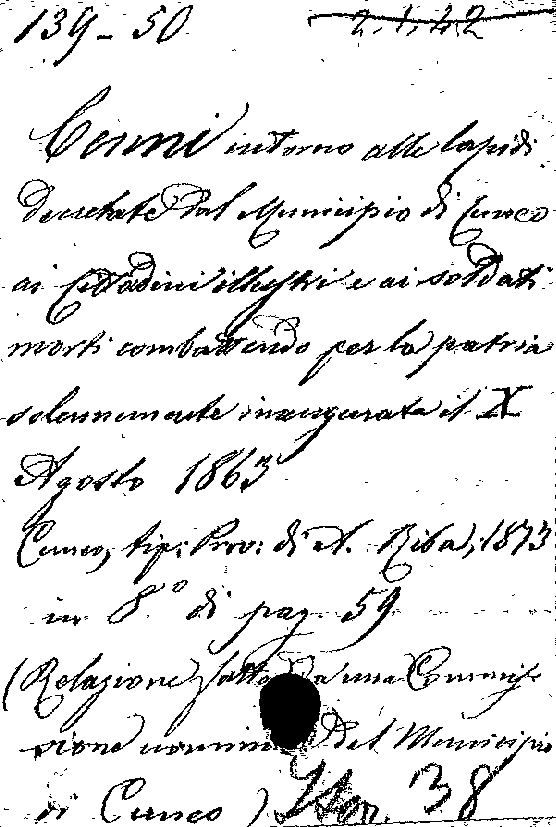 139-50 2.1.42
Cenni intorno alle lapidi
decretate dal Municipio di Cuneo
ai Cittadini illustri e ai soldati
morti combattendo per la patria
solennemente inaugurata il X
Agosto 1863
Cuneo, tip: Prov: di A. Riba, 1873
in 8.° di pag. 59
(Relazione fatta da una Commis-
sione nomin del Municipio
di Cuneo) 38